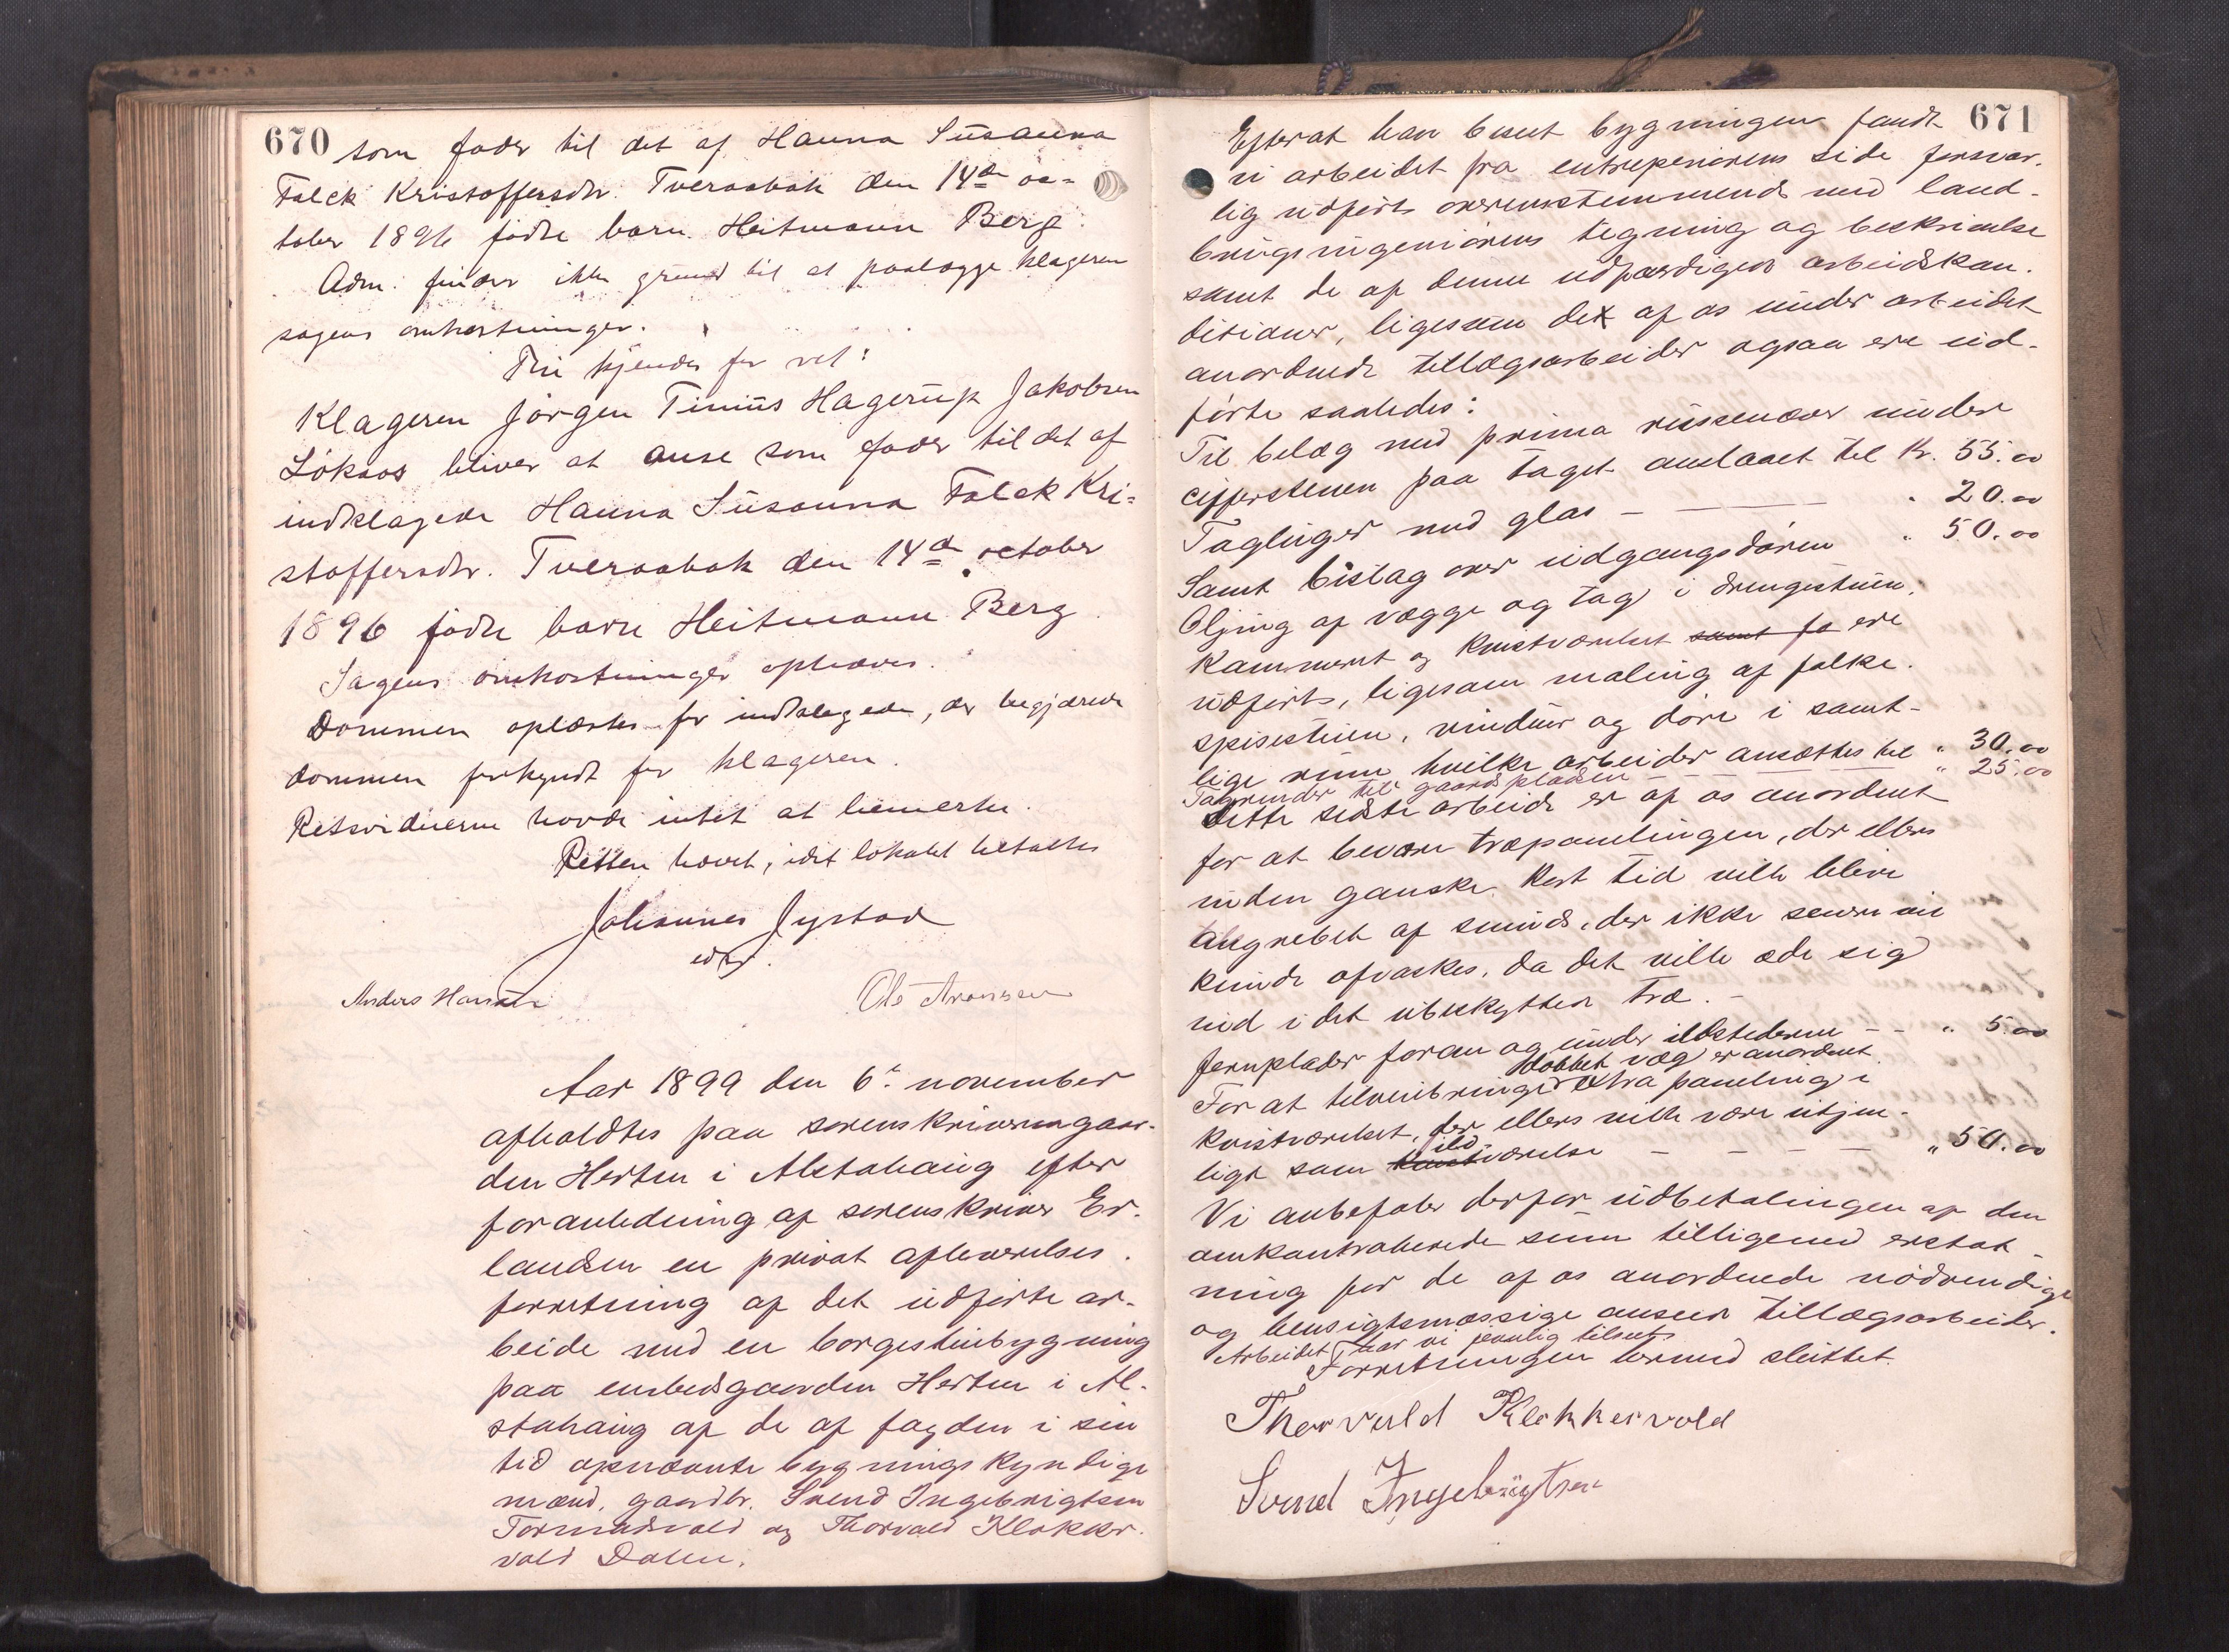 670
som fader til det af Hanna Susanna
Falck Kristoffersdtr. Tveraabak den 14de oc-
tober 1896 fødte barn Heitmann Berg.
Adm. finder ikke grund til at paalægge klageren
sagens omkostninger.
Thi kjendes for ret:
Klageren Jørgen Tinius Hagerup Jakobsen
Løksos bliver at anse som fader til det af
indklagede Hanna Susanna Falck Kri-
stoffersdtr. Tveraabak den 14de october
1896 fødte barn Heitmann Berg.
Sagens omkostninger ophæves.
Dommen oplæstes for indklagede, der begjærede
dommen forkyndt for klageren.
Retsvidnerne havde intet at bemerke.
Retten hævet, idet lokalet betaltes
Johannes Jystad
edsv.
Anders Hansen
Ole Aronsen
Aar 1899 den 6te november
afholdtes paa sorenskrivergaar-
den Herten i Alstahaug efter
foranledning af sorenskriver Er-
landsen en privat afleverelses-
forretning af det udførte ar-
beide med en borgestuebygning
paa embedsgaarden Herten i Al-
stahaug af de af fogden i sin
tid opnævnte bygningskyndige
mænd, gaardbr. Svend Ingebrigtsen
Formadsvold og Thorvald Klokker-
vold Dalen.
671
Efterat han beseet bygningen fandt
vi arbeidet fra entreprenørens side forsvar-
lig udført overensstemmende med land-
brugsingeniørens tegning og beskrivelse
samt de af denne udfærdigede arbeidskon-
ditioner, ligesom det af os under arbeidet
anordnede tillægsarbeider ogsaa ere ud-
førte saaledes:
Til belæg med prima russenæver under
ciffersteinen paa taget anslaaet til Kr. 55.00
Tagluger med glas - — " 20.00
Samt bislag over udgangsdøren " 50.00
Oljing af vægge og tag i drengestuen,
Kammeret og kvistværelset samt fo ere
udførte, ligesom maling af folke-
spisestuen, vinduer og døre i samt-
lige rum hvilke arbeider ansættes til " 30.00
Tagrender til gaardspladsen — — " 25.00
Dette sidste arbeide er af os anordnet
for at bevare træpanelingen, der ellers
inden ganske kort tid ville blive
angrebet af smuds, der ikke senere
kunde afvaskes, da det ville æde sig
ind i det ubeskyttede træ. -
Jernplader foran og under ildstederne - - " 5.00
dobbelt væg er anordnet
For at tilveiebringe extra paneling i
kvistværelset, der ellers ville være utjen-
ild
ligt som kvistværelse - - - - " 50.00
Vi anbefaler derfor udbetalingen af den
omkontraherede sum tilligemed erstat-
ning for de af os anordnede nødvendige
og hensigtsmæssige anseede tillægsarbeider.
Arbeidet har vi jevnlig tilseet
Forretningen hermed sluttet.
Thorvald Klokkervold
Svend Ingebrigtsen